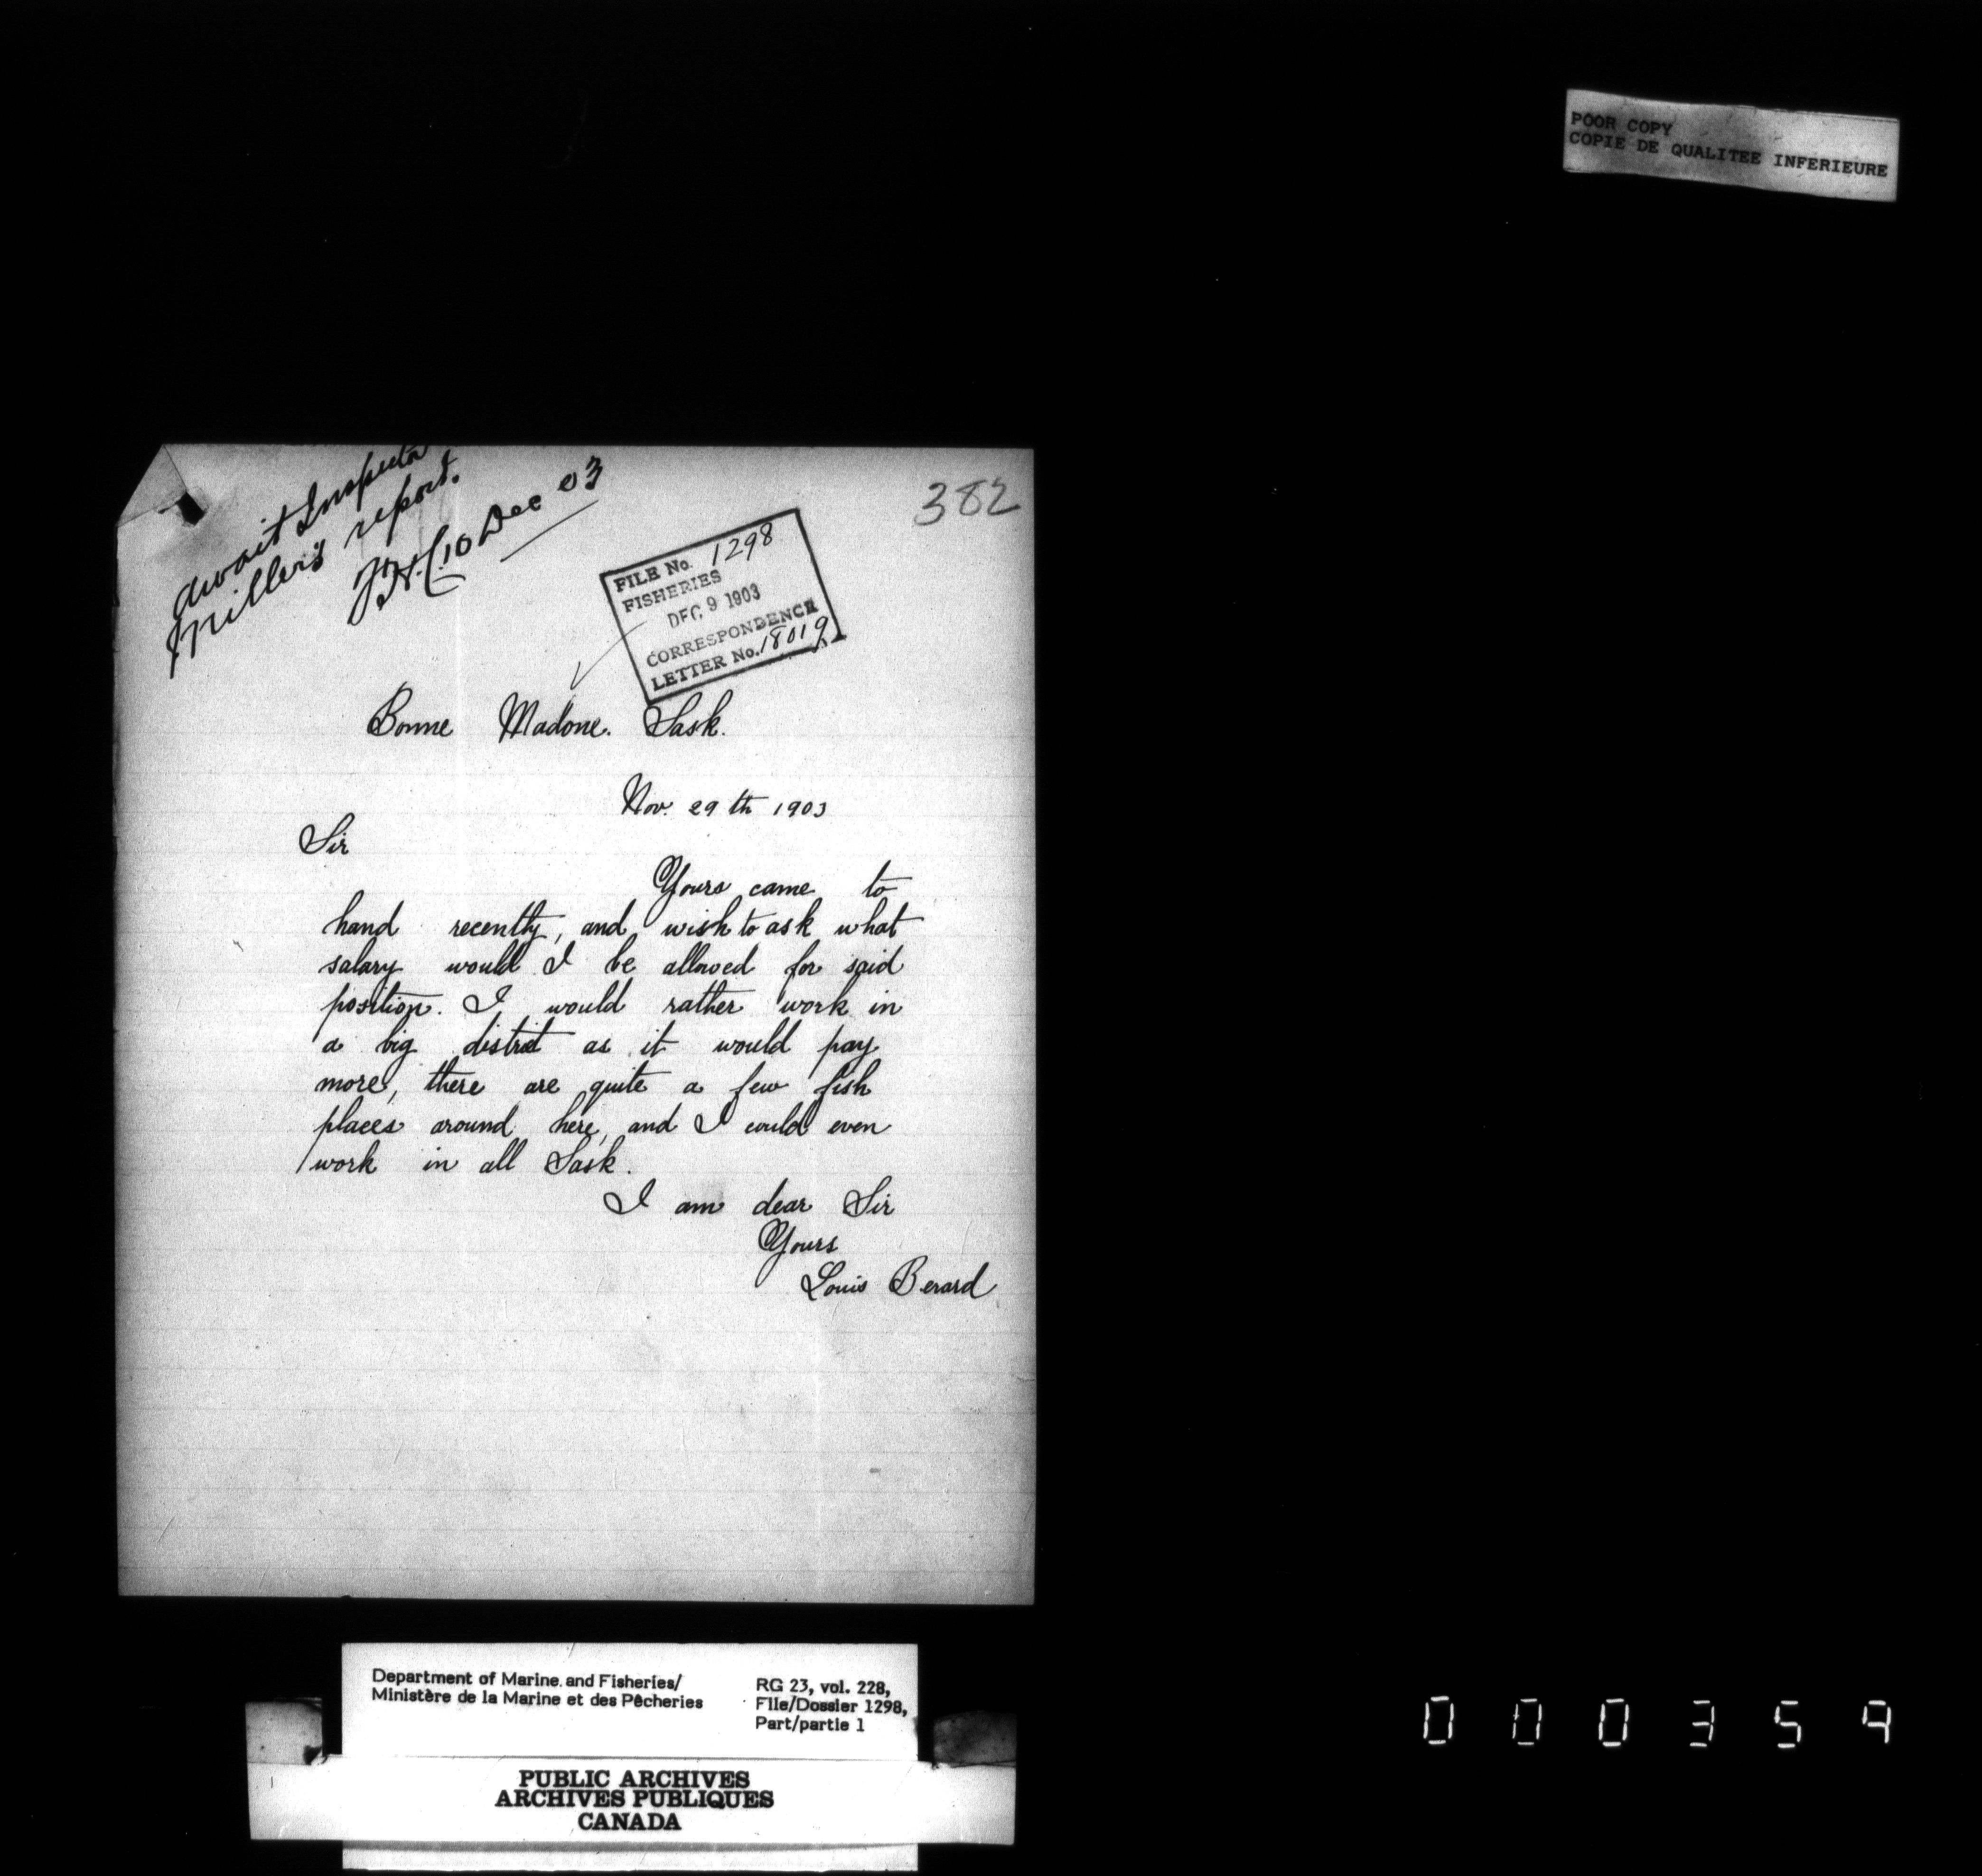 POOR COPY
COPIE DE QUALITEE INFERIEURE
await Inspector
Miller's report.
10 Dec 03
382
FILE No. 1298
FISHERIES
DEC 9 1903
CORRESPONDENCE
LETTER No. 18019
Bonne Madone. Sask.
Nov. 29th 1903
Sir
Yours came to
hand recently, and wish to ask what
salary would I be allowed for said
position. I would rather work in
a big district as it would pay
more, there are quite a few fish
places around here, and I could even
work in all Sask.
I am dear Sir
Yours
Louis Berard
Department of Marine and Fisheries/
Ministère de la Marine et des Pêcheries
RG 23, vol. 228,
File/Dossier 1298,
Part/partie 1
PUBLIC ARCHIVES
ARCHIVES PUBLIQUES
CANADA
000359